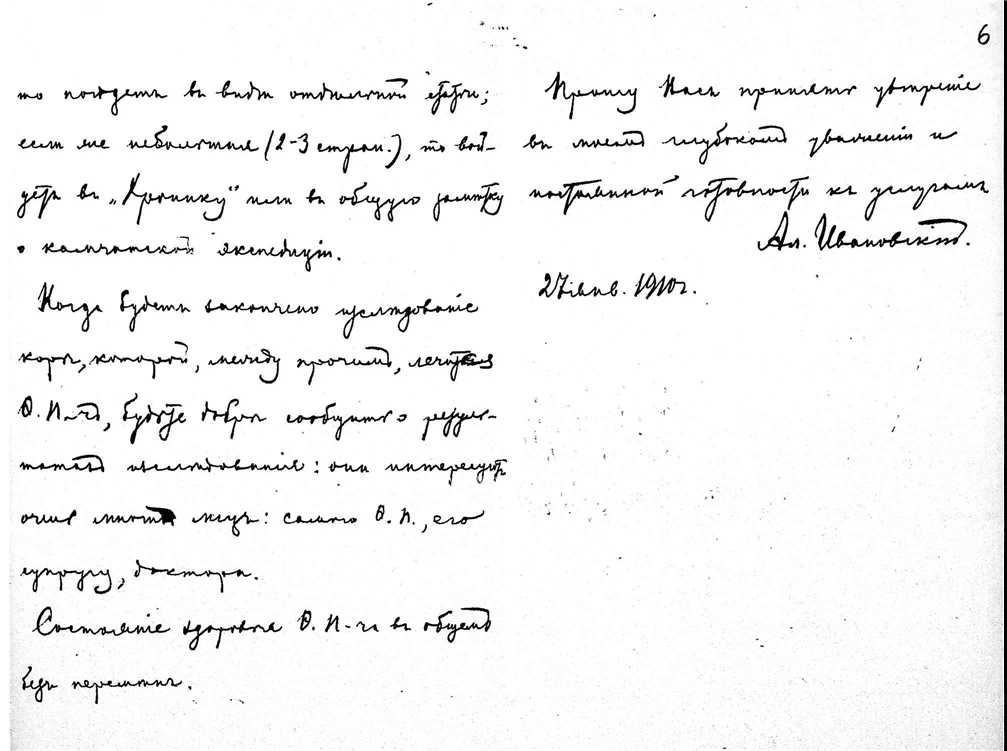 6
то пойдетъ въ видѣ отдѣльной статьи;
если же небольшая (2-3 стран.), то вой-
детъ въ „Хронику" или въ общую замѣтку
о камчатской экспедиціи.
Когда будетъ закончено изслѣдованіе
коры, которой, между прочимъ, лечится
Ѳ. П-чъ, будьте добры сообщить о резуль-
татахъ изслѣдованія: они интересуютъ
очень многихъ лицъ: самого Ѳ. П., его
супругу, доктора.
Состояніе здоровья Ѳ. П-ча въ общемъ
безъ перемѣнъ.
Прошу Васъ принять увѣреніе
въ моемъ глубокомъ уваженіи и
постоянной готовности къ услугамъ
Ал. Ивановскій.
27 янв. 1910 г.